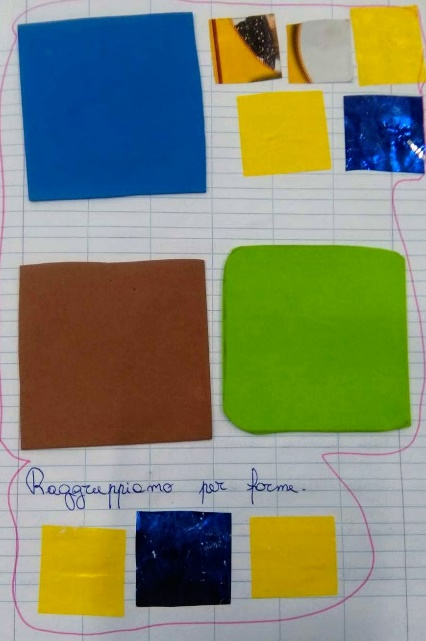 Raggruppiamo per forme.